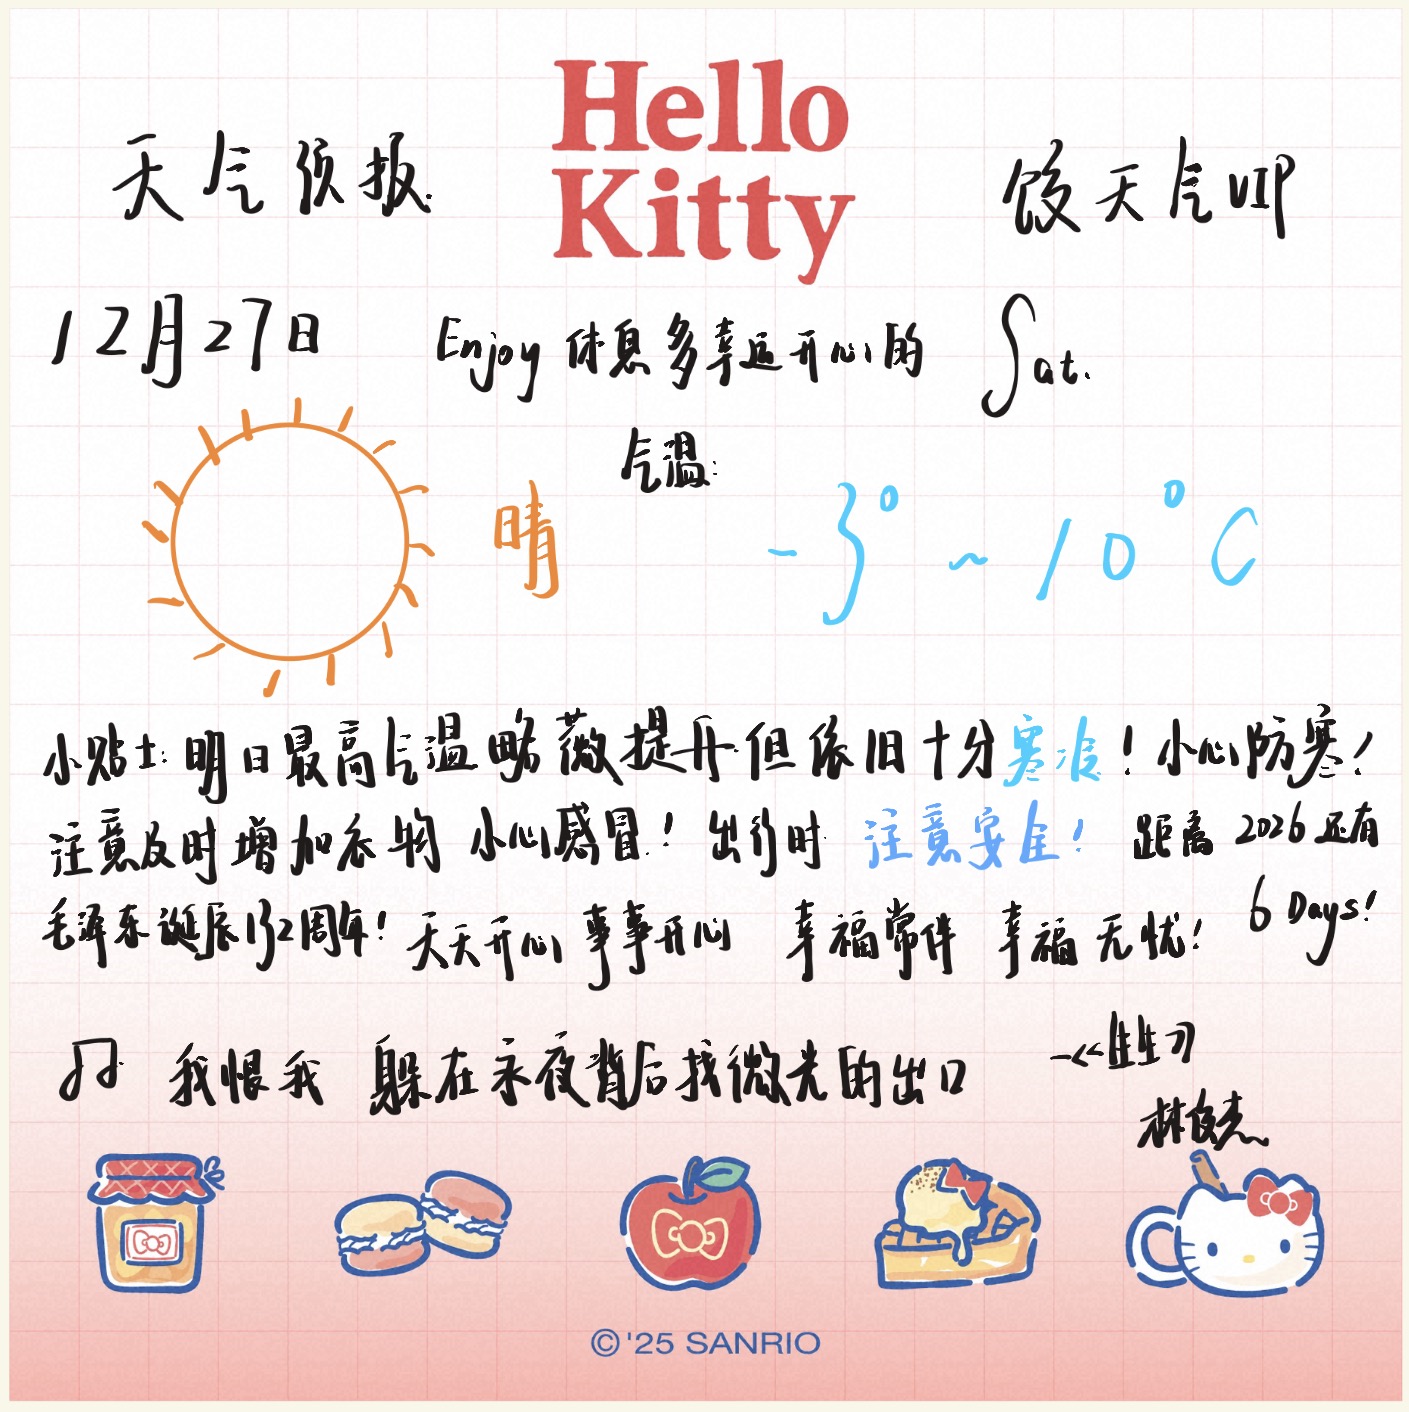 Hello
Kitty
天气预报.
饺天气VIP
12月27日 Enjoy 休息多幸运开心的 Sat.
气温:
晴 -3°~10°C
小贴士:明日最高气温略微提升但依旧十分寒冷!小心防寒!
注意及时增加衣物 小心感冒!出行时 注意安全! 距离2026还有
6 Days!
毛泽东诞辰132周年!天天开心 事事开心 幸福常伴 幸福无忧!
我恨我 躲在永夜背后找微光的出口
林俊杰
©'25 SANRIO